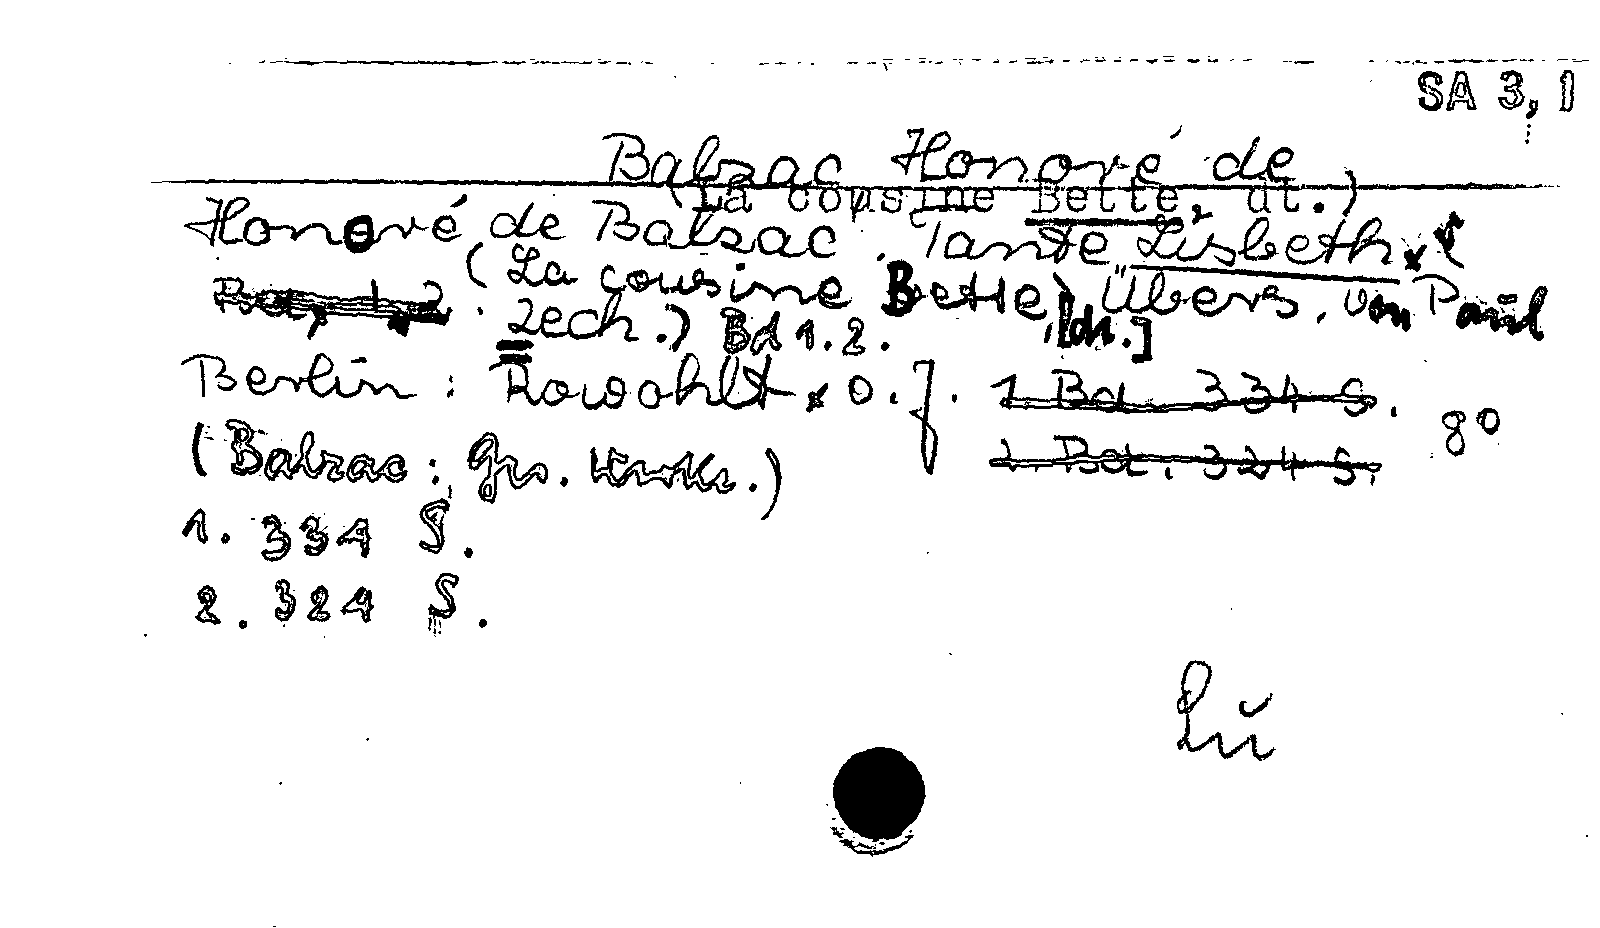 SA 3, 1
Balzac Honoré de
(La cousine Bette, dt.)
Honoré de Balzac. Tante Lisbeth.
(La cousine Bette, [dt.]) Übers. von Paul
Bd. 1. 2. Zech.) Bd 1. 2.
Berlin: Rowohlt o. J. 1. Bd. 334 S. 8°
(Balzac: Ges. Werke.) 2. Bd. 324 S.
1. 334 S.
2. 324 S.
Lü